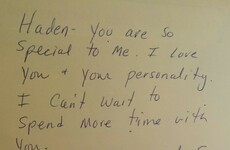 Haden- You are so
special to me. I love
you + your personality.
I can't wait to
spend more time with
you.